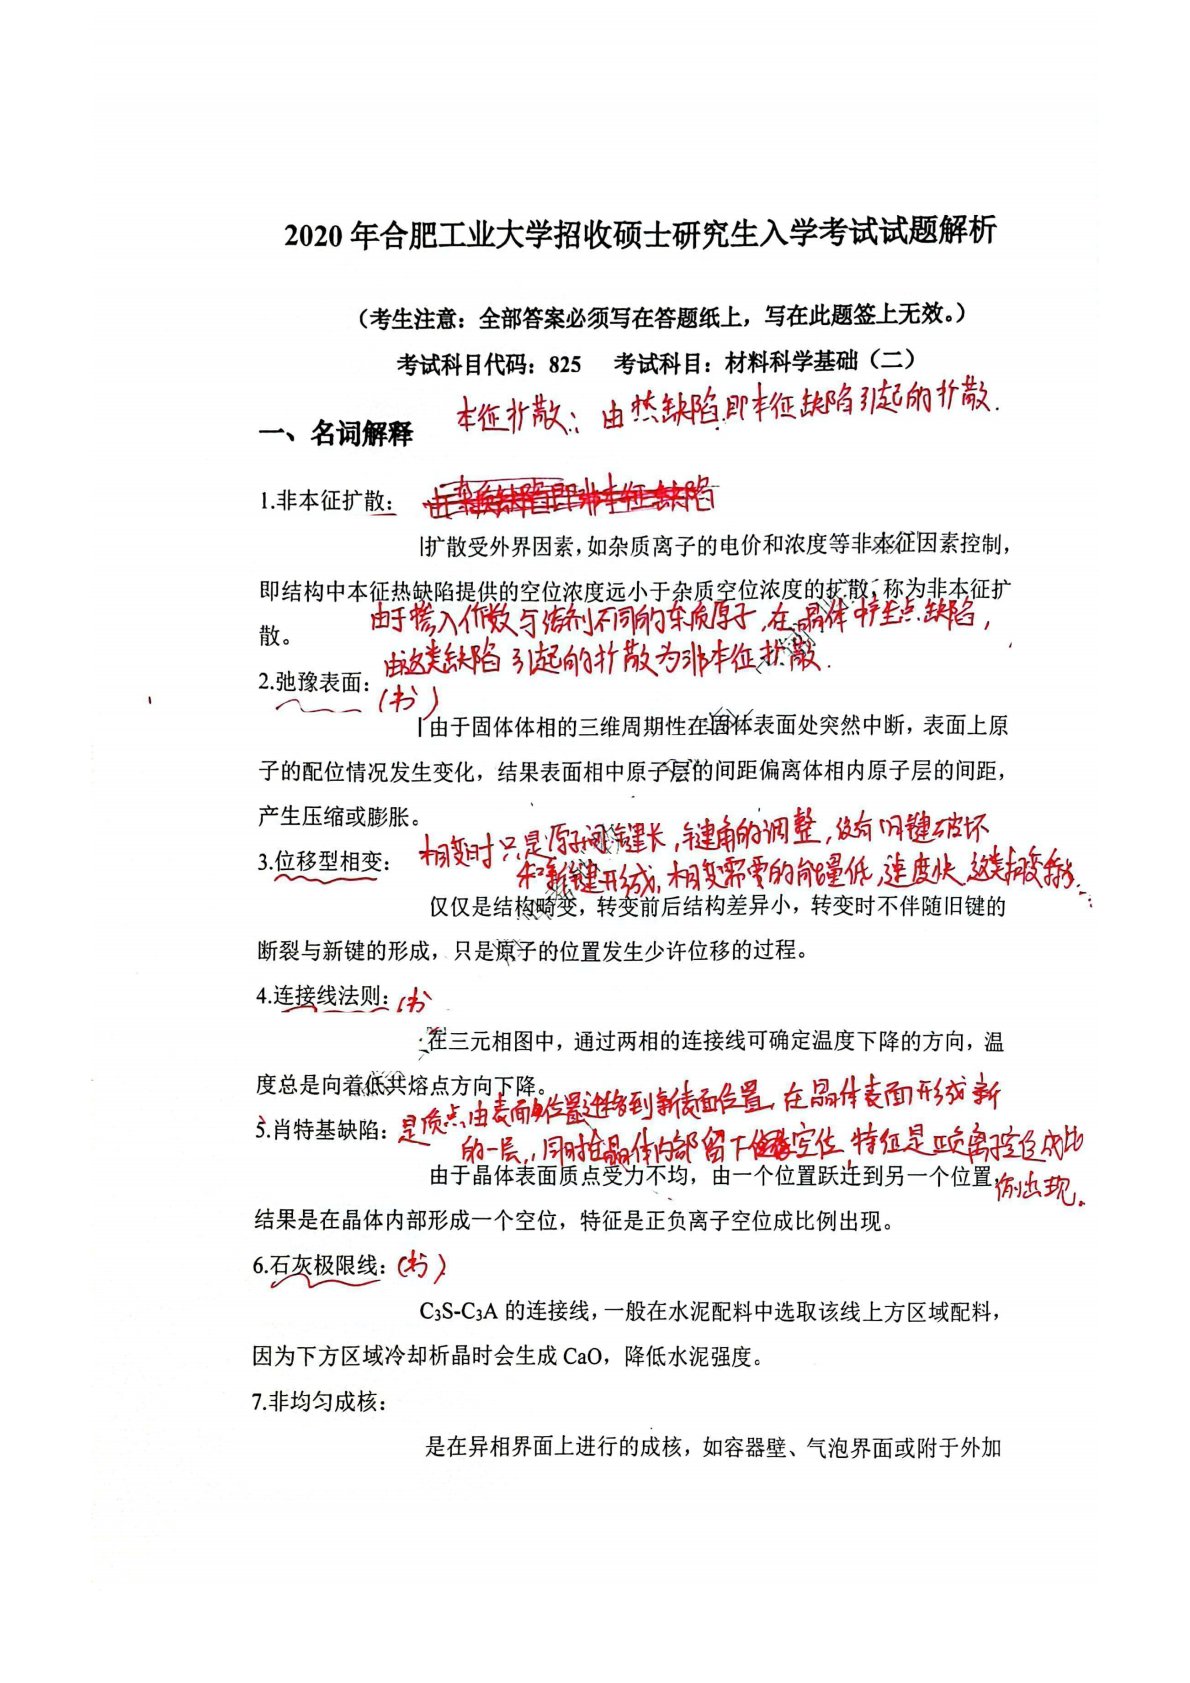 2020 年合肥工业大学招收硕士研究生入学考试试题解析
（考生注意：全部答案必须写在答题纸上，写在此题签上无效。）
考试科目代码：825 考试科目：材料科学基础（二）
本征扩散：由热缺陷即本征缺陷引起的扩散.
一、名词解释
1.非本征扩散：
扩散受外界因素，如杂质离子的电价和浓度等非本征因素控制，
即结构中本征热缺陷提供的空位浓度远小于杂质空位浓度的扩散，称为非本征扩
散。
由于掺入价数与溶剂不同的杂质原子，在晶体中产生点缺陷，
由这类缺陷引起的扩散为非本征扩散.
2.弛豫表面：
（书）
由于固体体相的三维周期性在固体表面处突然中断，表面上原
子的配位情况发生变化，结果表面相中原子层的间距偏离体相内原子层的间距，
产生压缩或膨胀。
相变时只是原子间键长，键角的调整，没有旧键破坏
3.位移型相变：
和新键形成，相变需要的能量低，速度快，这类相变称
仅仅是结构畸变，转变前后结构差异小，转变时不伴随旧键的
断裂与新键的形成，只是原子的位置发生少许位移的过程。
4.连接线法则：（书
在三元相图中，通过两相的连接线可确定温度下降的方向，温
度总是向着低共熔点方向下降。
5.肖特基缺陷：是质点由表面位置迁移到新表面位置，在晶体表面形成新
的一层，同时在晶体内部留下空位，特征是正负离子空位成比
例出现。
由于晶体表面质点受力不均，由一个位置跃迁到另一个位置，
结果是在晶体内部形成一个空位，特征是正负离子空位成比例出现。
6.石灰极限线：（书）
C₃S-C₃A 的连接线，一般在水泥配料中选取该线上方区域配料，
因为下方区域冷却析晶时会生成 CaO，降低水泥强度。
7.非均匀成核：
是在异相界面上进行的成核，如容器壁、气泡界面或附于外加